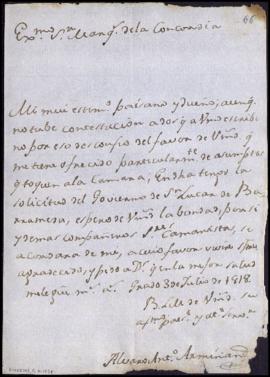 66
Exmo. Sr. Marqs. de la Concordia
Mi mui estimo. paisano y dueño; aunq.
no tube contestacion a dos q. a Vmd. escribi
no por eso desconfio del favor de Vmd. q.
me tiene ofrecido particularmte. de asumptos
q. toquen a la Camara; En dha tengo la
solicitud del Govierno de Sn. Lucar de Ba-
rrameda, espero de Vmd. la bondad, por si
y demas compañeros Sres. Camaristas, se
acordara de mi, a cuio favor vivire
agradecido, y pido a Ds. gue. en la mejor salud
ms. as. Grao 3 de Julio de 1818.
B. L. M. de Vmd. su
Alvaro Anto. Armiñan